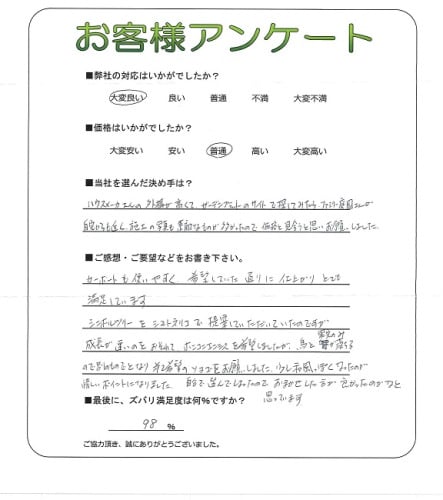 お客様アンケート
■弊社の対応はいかがでしたか?
大変良い 良い 普通 不満 大変不満
■価格はいかがでしたか?
大変安い 安い 普通 高い 大変高い
■当社を選んだ決め手は?
ハウスメーカーさんの外構が高くて、ガーデンプラットのサイトで探してみたら、ファミリー庭園さんが
自宅からも近く、施工の写真も素敵なものが多かったので価格と見合うと思いお願いしました。
■ご感想・ご要望などをお書き下さい。
カーポートも使いやすく 希望していた通りに仕上がりとても
満足しています
シンボルツリーをシマトネリコで提案していただいていたのですが
成長が速いのをおそれて ホンコンエンシスを希望しましたが、鳥と
ので思いものとなり 希望のソヨゴをお願いしました。少し和風っぽくなったのが
惜しいポイントになりました。自分で選んでしまったので おまかせした方が良かったのかなと
思っています
■最後に、ズバリ満足度は何%ですか?
98 %
ご協力頂き、誠にありがとうございました。